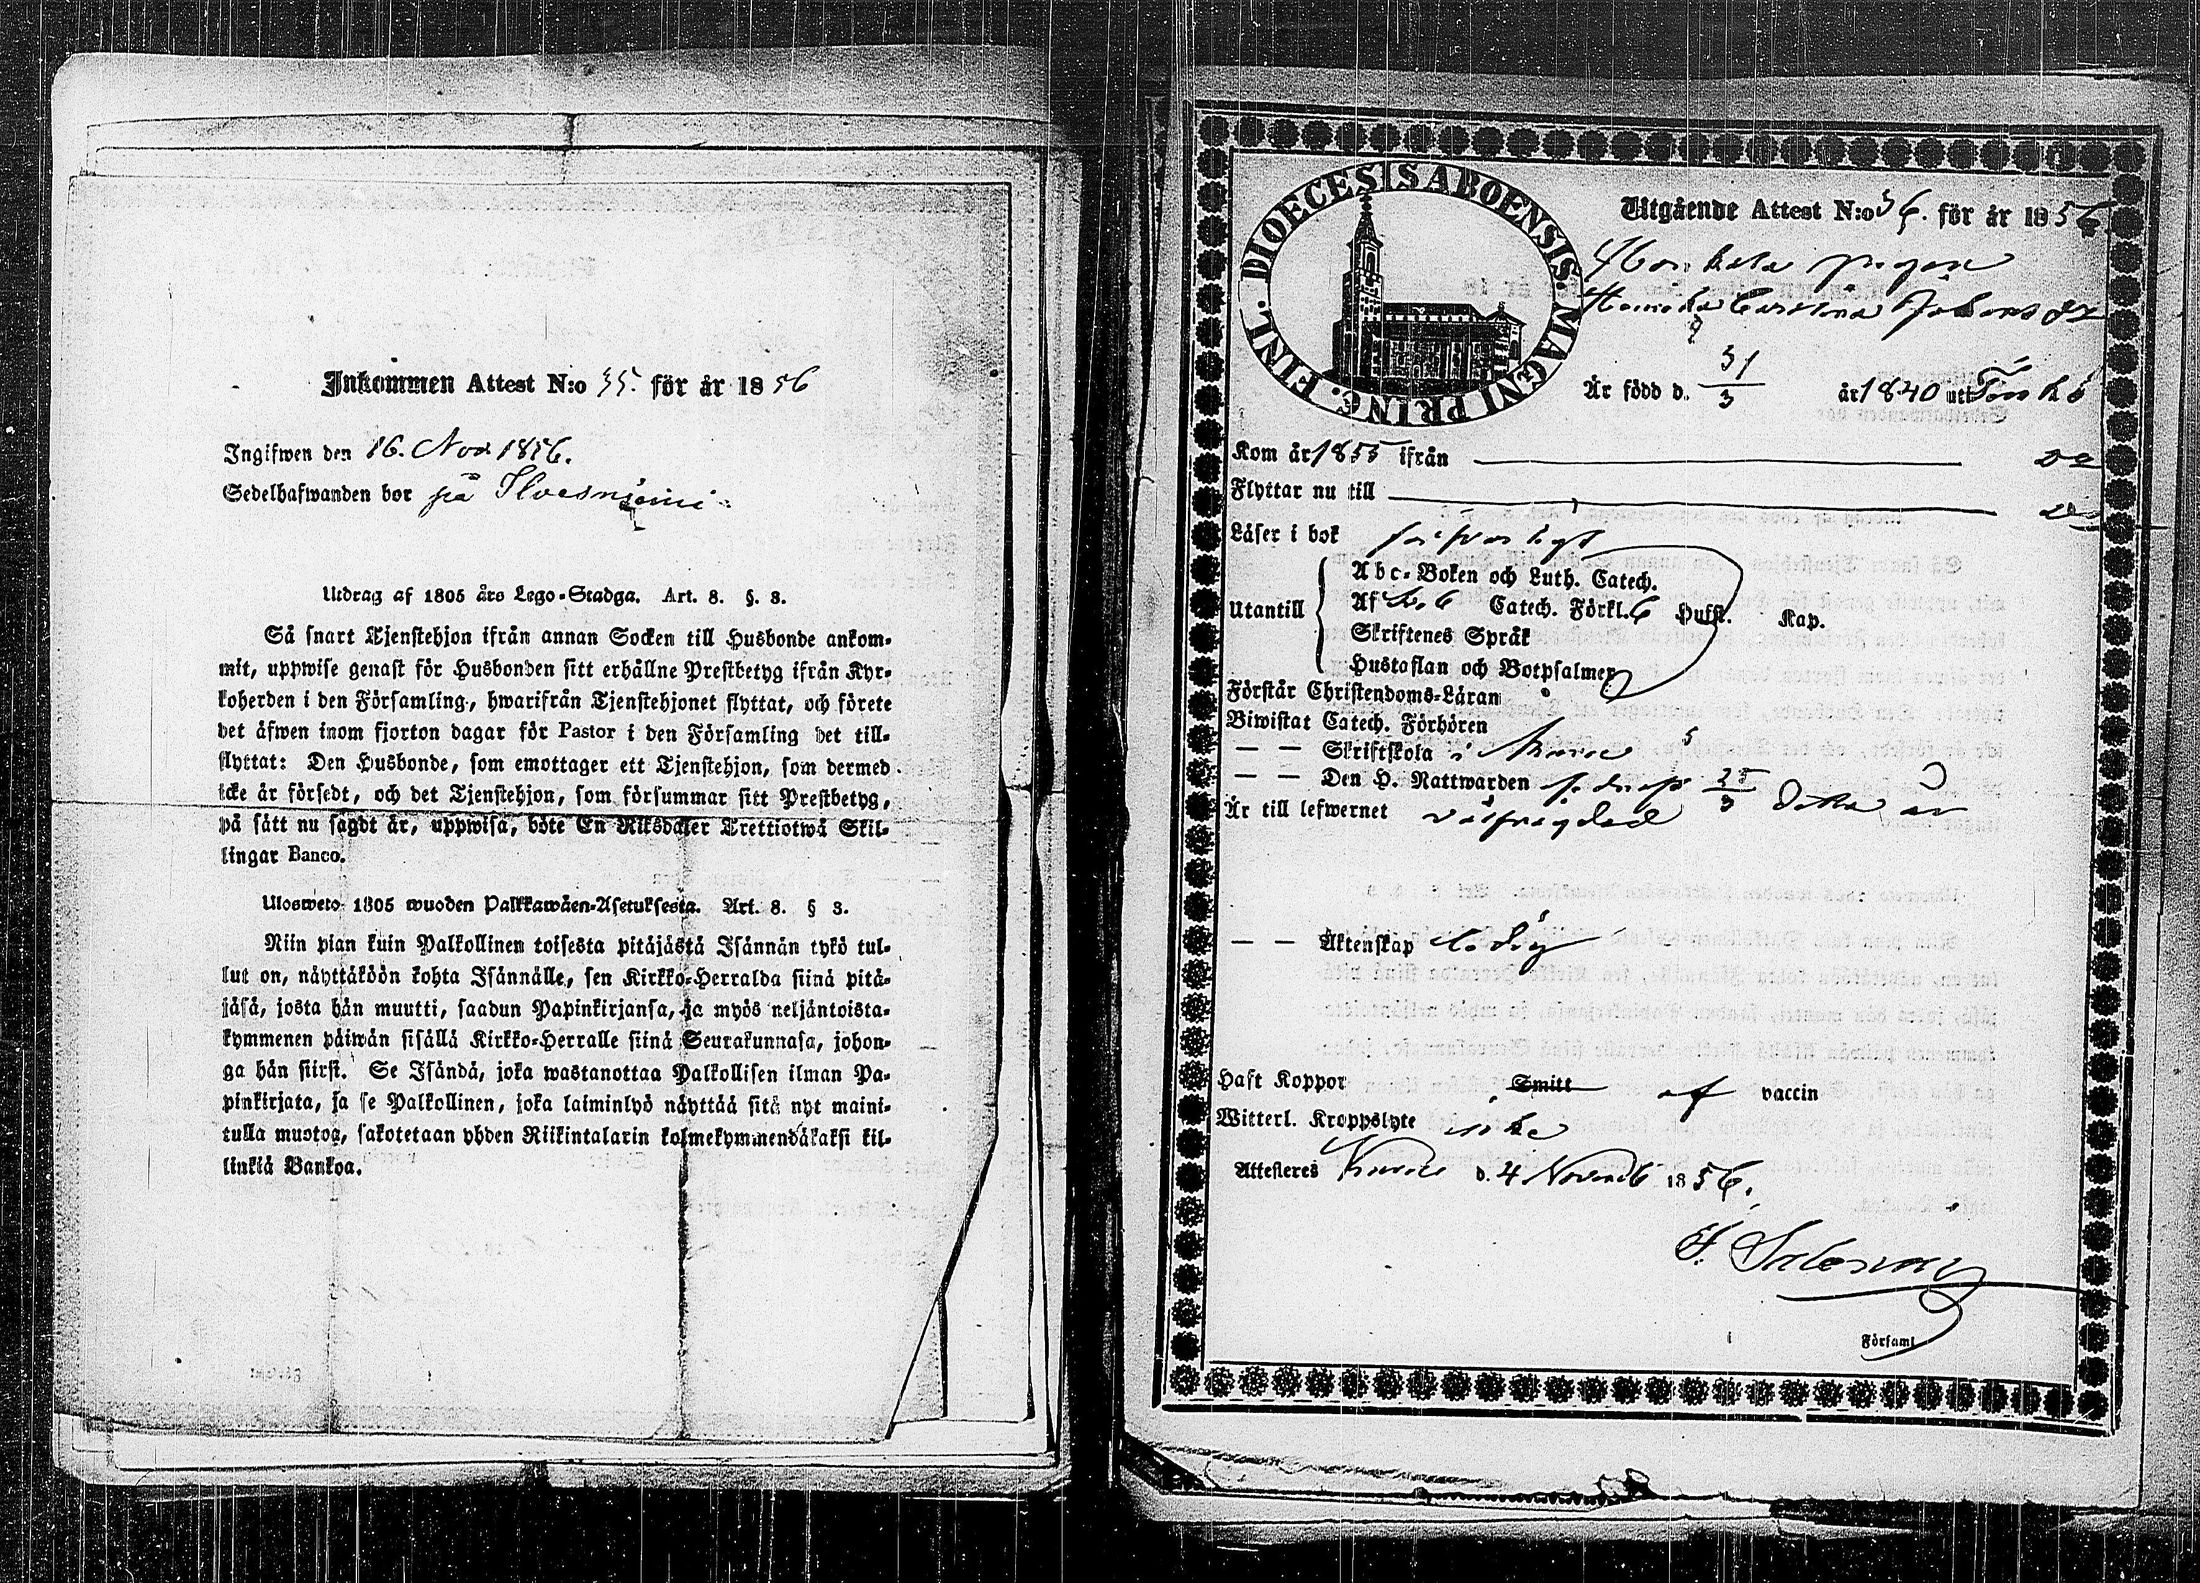 Inkommen Attest N:o 35. för år 1856
Ingifwen den 16. Nov 1856.
Sedelhafwanden bor på Ilvesniemi
Utdrag af 1805 års Lego-Stadga. Art. 8. §. 8.
Så snart Tjenstehjon ifrån annan Socken till Husbonde ankom-
mit, uppwise genast för Husbonden sitt erhållne Prestbetyg ifrån Kyr-
koherden i den Församling, hwarifrån Tjenstehjonet flyttat, och förete
det äfwen inom fjorton dagar för Pastor i den Församling det till-
flyttat: Den Husbonde, som emottager ett Tjenstehjon, som dermed
icke är försedt, och det Tjenstehjon, som försummar sitt Prestbetyg,
på sätt nu sagdt är, uppwisa, böte En Riksdaler Trettiotwå Skil-
lingar Banco.
Ulosweto 1805 wuoden Palkkawäen-Asetuksesta. Art. 8. § 8.
Niin pian kuin Palkollinen toisesta pitäjästä Isännän tykö tul-
lut on, näyttäköön kohta Isännälle, sen Kirkko-Herralda siinä pitä-
jäsä, josta hän muutti, saadun Papinkirjansa, ja myös neljäntoista-
kymmenen päiwän sisällä Kirkko-Herralle siinä Seurakunnasa, johon-
ga hän siirsi. Se Isändä, joka wastanottaa Palkollisen ilman Pa-
pinkirjata, ja se Palkollinen, joka laiminlyö näyttää sitä nyt maini-
tulla muotoa, sakotetaan yhden Riikintalarin kolmekymmendäkaksi kil-
linkiä Bankoa.
DIOECESIS ABOENSIS. MAGNI PRINC. FINL.
Utgående Attest N:o 56. för år 1856
pigan
Carolina Johansdr
Är född d. 31/3 år 1840 uti
Kom år 1855 ifrån
Flyttar nu till
Läser i bok försvarligt
Utantill
Abc-Boken och Luth. Catech.
Af Catech. Förkl. 6 Hufst. Kap.
Skriftenes Språk
Hustaflan och Botpsalmer
Förstår Christendoms-Läran
Biwistat Catech. Förhören
— — Skriftskola i
— — Den H. Nattwarden 25/3 detta år
Är till lefwernet välfrägdad
— — Äktenskap ledig
Haft Koppor Smitt af vaccin
Witterl. Kroppslyte icke
Attesteres d. 4 Novemb 1856.
Församl